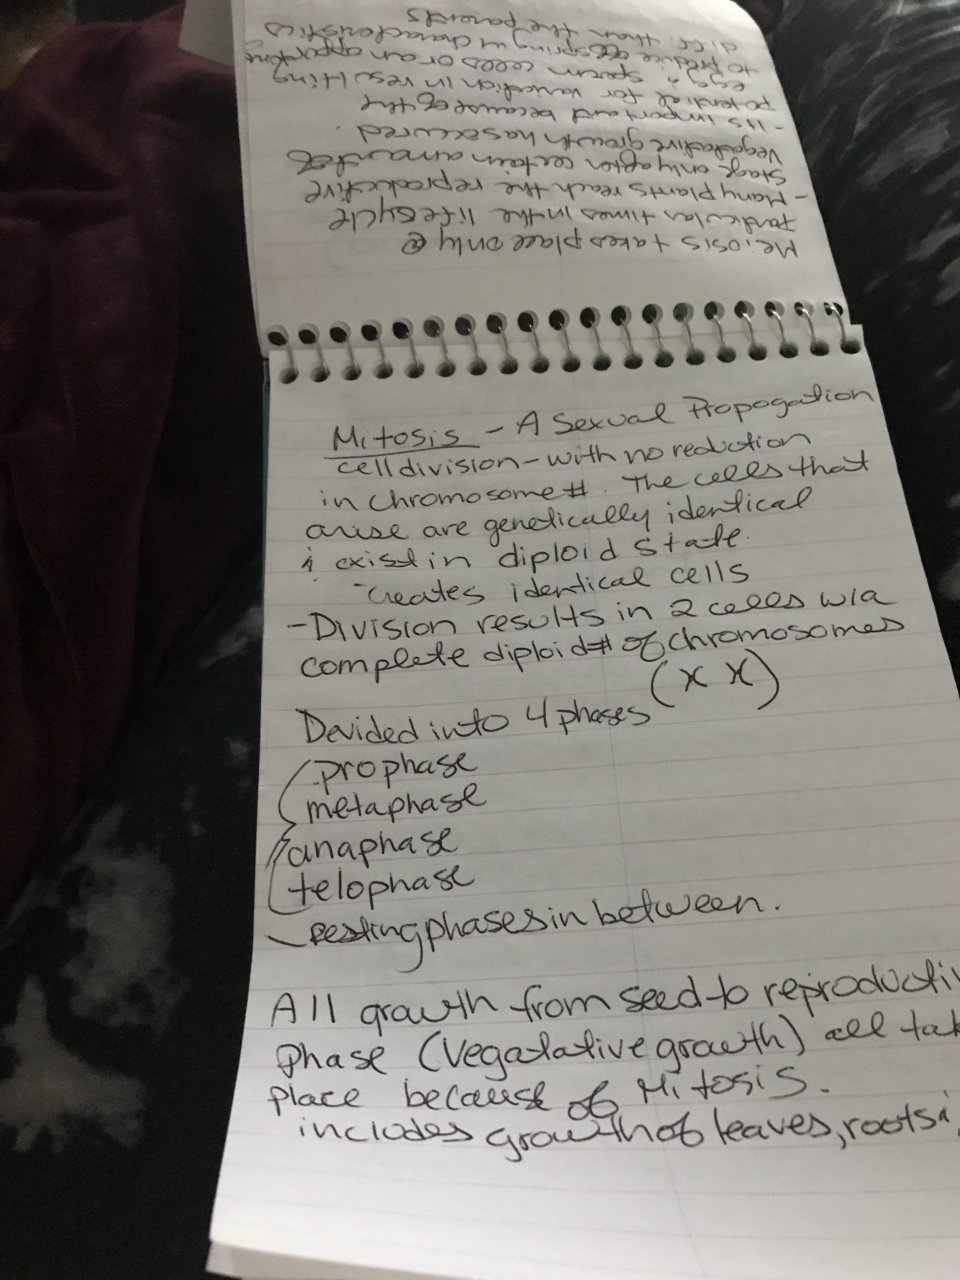 Meiosis takes place only @
particular times in the lifecycle
- Many plants reach the reproductive
stage only after certain amount of
Vegetative growth has occured.
- its important because of the
potential for variation in resulting
egg & sperm cells or an opportunity
to produce offspring w characteristics
diff. than the parents
Mitosis - A Sexual Propogation
cell division - with no reduction
in chromosome #. The cells that
arise are genetically identical
& exist in diploid state.
- creates identical cells
- Division results in 2 cells w/a
complete diploid # of chromosomes
(x x)
Devided into 4 phases
prophase
metaphase
anaphase
telophase
resting phases in between.
All growth from seed to reproducti
phase (Vegatative growth) all tak
place because of Mitosis.
includes growth of leaves, roots &